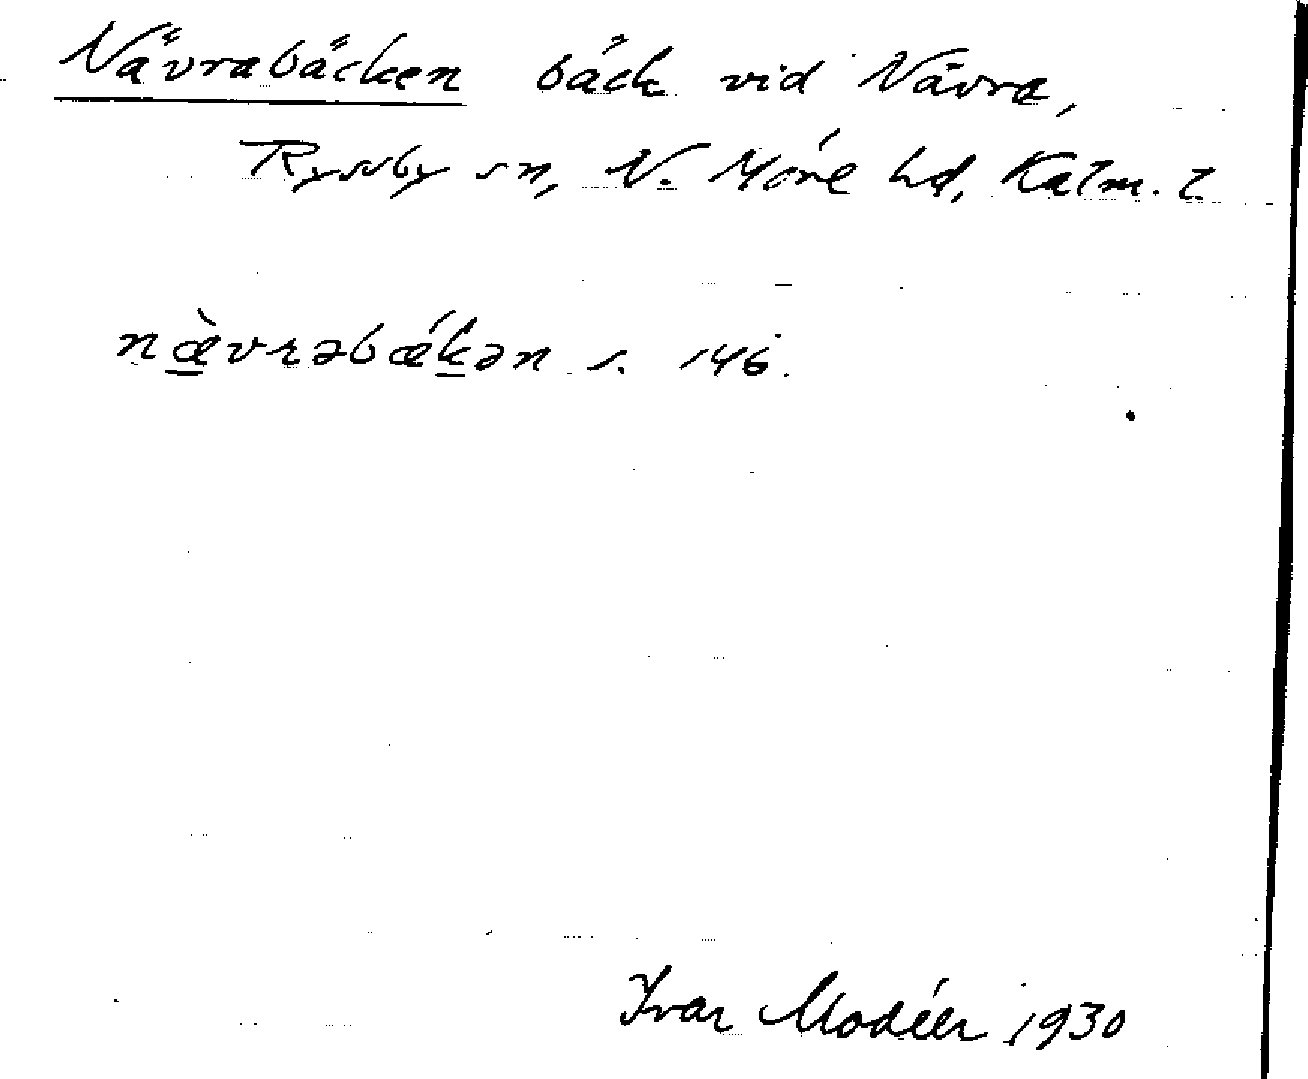 Nävrabäcken bäck vid Nävra,
Ryssby sn, N. Möre hd, Kalm. l.
næ̀vrəbækən s. 146.
Ivar Modéer 1930